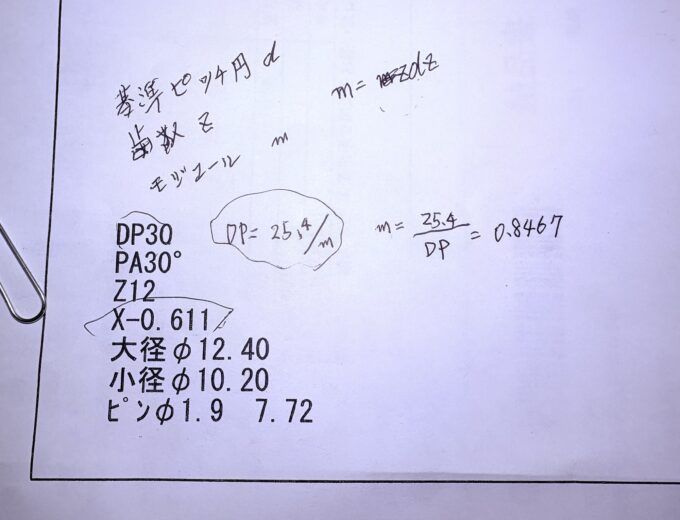 基準ピッチ円 d
m= zdz
歯数 z
モジュール m
DP30
DP= 25.4/m
m= 25.4/DP = 0.8467
PA30°
Z12
X-0.611
大径φ12.40
小径φ10.20
ピンφ1.9 7.72